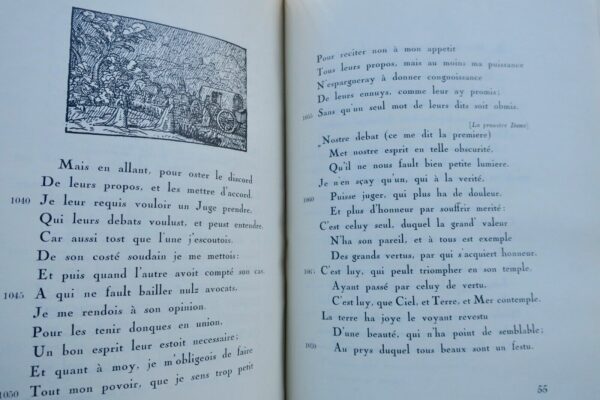 Mais en allant, pour oster le discord
De leurs propos, et les mettre d'accord,
1040 Je leur requis vouloir un Juge prendre,
Qui leurs debats voulust, et peust entendre.
Car aussi tost que l'une j'escoutois,
De son costé soudain je me mettois:
Et puis quand l'autre avoit compté son cas,
1045 A qui ne fault bailler nulz avocats,
Je me rendois à son opinion.
Pour les tenir donques en union,
Un bon esprit leur estoit necessaire;
Et quant à moy, je m'obligeois de faire
1050 Tout mon povoir, que je sens trop petit
Pour reciter non à mon appetit
Tous leurs propos, mais au moins ma puissance
N'espargneray à donner congnoissance
De leurs ennuys, comme leur ay promis;
1055 Sans qu'un seul mot de leurs dits soit obmis.
[La première Dame]
„Nostre debat (ce me dit la premiere)
Met nostre esprit en telle obscurité,
Qu'il ne nous fault bien petite lumiere.
Je n'en sçay qu'un, qui à la verité,
1060 Puisse juger, qui plus ha de douleur,
Et plus d'honneur par souffrir merité:
C'est celuy seul, duquel la grand' valeur
N'ha son pareil, et à tous est exemple
Des grands vertus, par qui s'acquiert honneur.
C'est luy, qui peult triompher en son temple,
Ayant passé par celuy de vertu.
C'est luy, que Ciel, et Terre, et Mer contemple.
La terre ha joye le voyant revestu
D'une beauté, qui n'ha point de semblable;
1070 Au prys duquel tous beaux sont un festu.
55